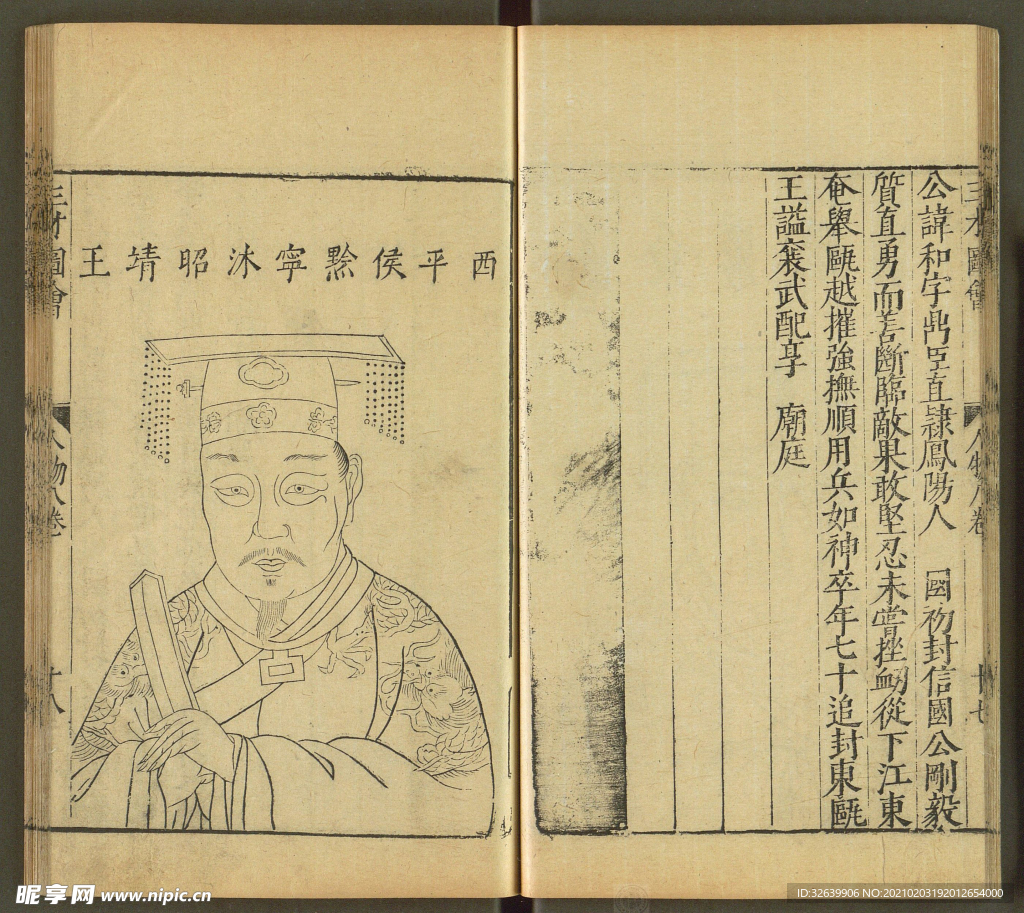 三才圖會
人物八卷
十七
公諱和字鼎臣直隸鳳陽人 國初封信國公剛毅
質直勇而善斷臨敵果敢堅忍未嘗挫衂從下江東
奄舉甌越摧強撫順用兵如神卒年七十追封東甌
王謚襄武配享 廟庭
西平侯黔寧沐昭靖王
三才圖會
人物八卷
十八
昵享网 www.nipic.cn
ID:32639906 NO:20210203192012654000